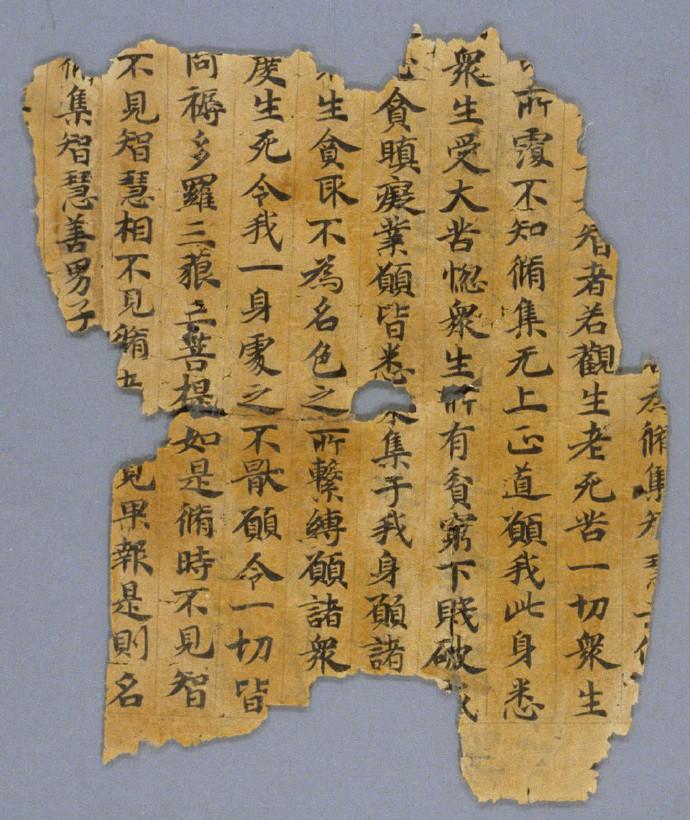 為脩集智
智者若觀生老死苦一切衆生
所覆不知脩集无上正道願我此身悉
衆生受大苦惱衆生所有貧窮下賤破戒
貪瞋癡業願皆悉來集于我身願諸
生貪取不為名色之所繫縛願諸衆
度生死令我一身處之不厭願令一切皆
阿耨多羅三藐三菩提如是脩時不見智
不見智慧相不見脩 見果報是則名
脩集智慧善男子